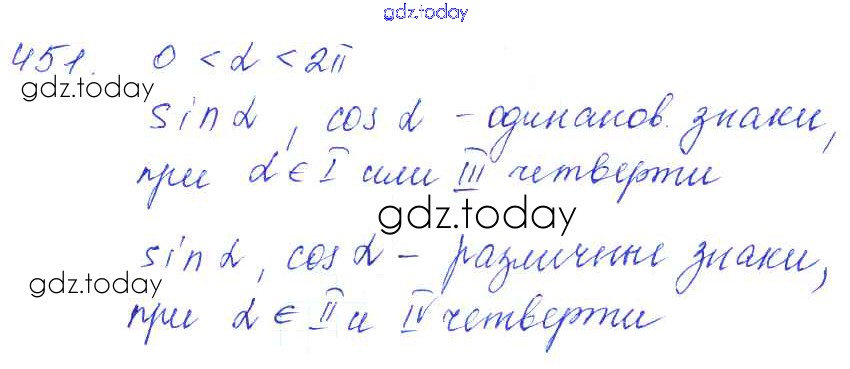 gdz.today
451. 0 < α < 2π
gdz.today
sin α, cos α - одинаков. знаки,
при α ∈ I или III четверти
gdz.today
sin α, cos α - различные знаки,
gdz.today
при α ∈ II и IV четверти